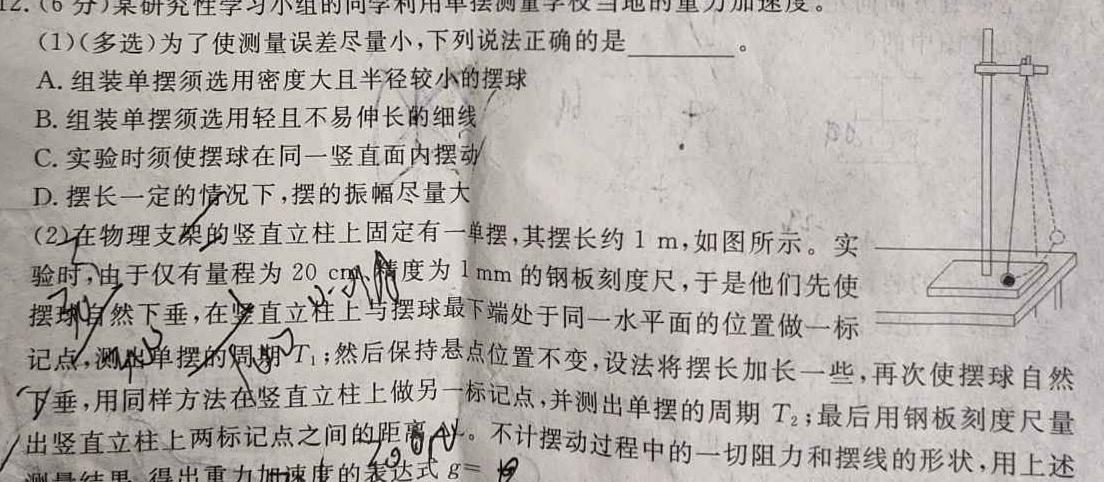 12.(6分)某研究性学习小组的同学利用单摆测量学校当地的重力加速度。
(1)(多选)为了使测量误差尽量小,下列说法正确的是________。
A. 组装单摆须选用密度大且半径较小的摆球
B. 组装单摆须选用轻且不易伸长的细线
C. 实验时须使摆球在同一竖直面内摆动
D. 摆长一定的情况下,摆的振幅尽量大
(2)在物理支架的竖直立柱上固定有一单摆,其摆长约 1 m,如图所示。实
验时,由于仅有量程为 20 cm、精度为 1 mm 的钢板刻度尺,于是他们先使
摆球自然下垂,在竖直立柱上与摆球最下端处于同一水平面的位置做一标
记点,测出单摆的周期 T₁;然后保持悬点位置不变,设法将摆长加长一些,再次使摆球自然
下垂,用同样方法在竖直立柱上做另一标记点,并测出单摆的周期 T₂;最后用钢板刻度尺量
出竖直立柱上两标记点之间的距离。不计摆动过程中的一切阻力和摆线的形状,用上述
测量结果,得出重力加速度的表达式 g=